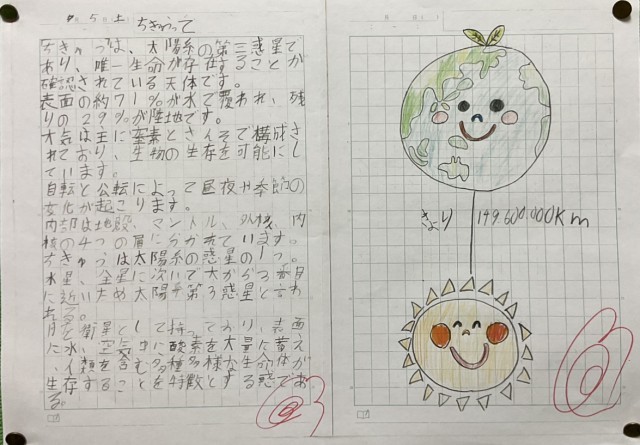 5 土 ちきゅうって
ちきゅうは、太陽系の第三惑星で
あり、唯一生命が存在することが
確認されている天体です。
表面の約71%が水で覆われ、残
りの29%が陸地です。
大気は主に窒素とさんそで構成さ
れており、生物の生存を可能にし
ています。
自転と公転によって昼夜や季節の
変化が起こります。
内部は地殻、マントル、外核、内
核の4つの層に分かれています。
ちきゅうは太陽系の惑星の1つ。
水星、金星に次いで太から3番目
に近いため太陽系第3惑星と言わ
れる。
月を衛星として持っており、表面
に水、空気中に酸素を大量に蓄え
、人類を含む多種多様な生命体が
生存することを特徴とする惑であ
る。
きょり 149.600.000Km